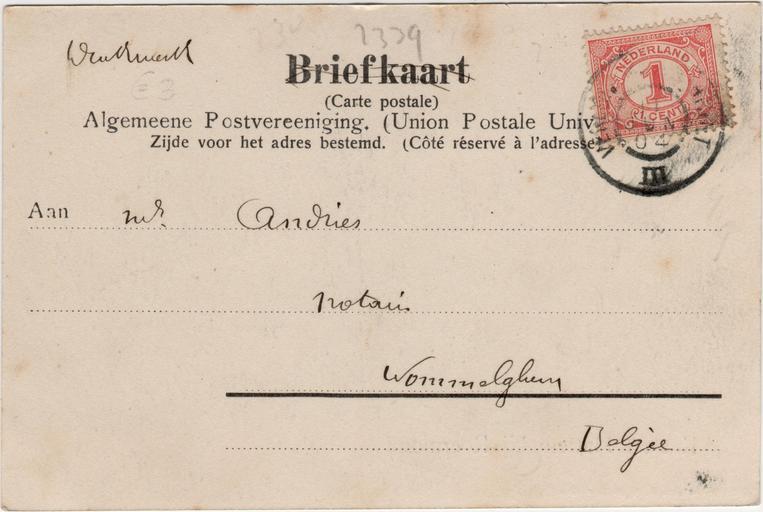 Drukwerk
2339
£ 3
Briefkaart
(Carte postale)
Algemeene Postvereeniging. (Union Postale Univ
Zijde voor het adres bestemd. (Côté réservé à l'adresse
NEDERLAND
1
1 CENT
04
III
Aan Mr. Andries
notaris
Wommelghem
België